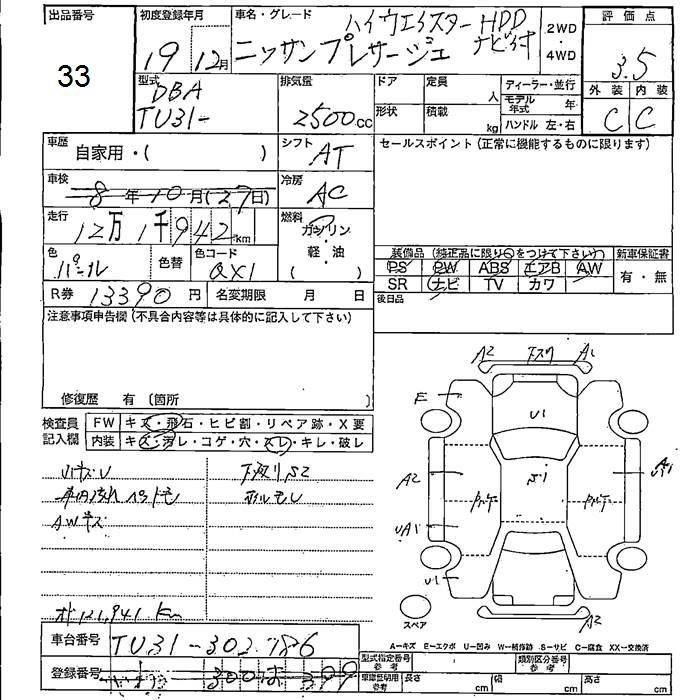 出品番号
33
初度登録年月
19 12月
車名・グレード
ハイウェイスター HDD
ニッサンプレサージュ ナビ付
2WD
・
4WD
評価点
3.5
外装 内装
C C
型式
DBA
TU31-
排気量
2500cc
ドア
定員
人
形状
積載
kg
ディーラー・並行
モデル年式 年
ハンドル 左・右
車歴
自家用・( )
シフト
AT
セールスポイント(正常に機能するものに限ります)
車検
8年10月(27日)
冷房
AC
走行
12万1千942km
燃料
ガソリン
軽・油
( )
色
パール
色替
色コード
QX1
装備品(純正品に限り○をつけて下さい)
新車保証書
PS PW ABS エアB AW
有・無
SR ナビ TV カワ
後日品
R券 13390円
名変期限 月 日
注意事項申告欄(不具合内容等は具体的に記入して下さい)
修復歴 有 (箇所 )
検査員
記入欄
FW キズ・飛石・ヒビ割・リペア跡・X要
内装 キズ・汚レ・コゲ・穴・スレ・キレ・破レ
下廻りS2
AWキズ
121,941km
A2 下スリ A1
E
U1
A2
S1
UA1
U1
A2
スペア
A=キズ E=エクボ U=凹み W=補修跡 S=サビ C=腐食 XX=交換済
車台番号
TU31-302786
登録番号
300 は 399
型式指定番号
参考
類別区分番号
参考
車庫証明用
参考
長さ cm
幅 cm
高さ cm